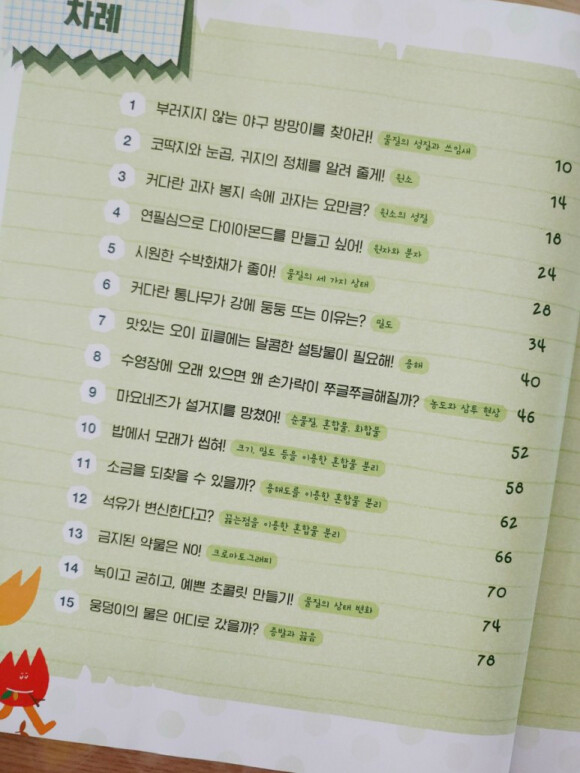 차례
1 부러지지 않는 야구 방망이를 찾아라! 물질의 성질과 쓰임새 10
2 코딱지와 눈곱, 귀지의 정체를 알려 줄게! 원소 14
3 커다란 과자 봉지 속에 과자는 요만큼? 원소의 성질 18
4 연필심으로 다이아몬드를 만들고 싶어! 원자와 분자 24
5 시원한 수박화채가 좋아! 물질의 세 가지 상태 28
6 커다란 통나무가 강에 둥둥 뜨는 이유는? 밀도 34
7 맛있는 오이 피클에는 달콤한 설탕물이 필요해! 용해 40
8 수영장에 오래 있으면 왜 손가락이 쭈글쭈글해질까? 농도와 삼투 현상 46
9 마요네즈가 설거지를 망쳤어! 순물질, 혼합물, 화합물 52
10 밥에서 모래가 씹혀! 크기, 밀도 등을 이용한 혼합물 분리 58
11 소금을 되찾을 수 있을까? 용해도를 이용한 혼합물 분리 62
12 석유가 변신한다고? 끓는점을 이용한 혼합물 분리 66
13 금지된 약물은 NO! 크로마토그래피 70
14 녹이고 굳히고, 예쁜 초콜릿 만들기! 물질의 상태 변화 74
15 웅덩이의 물은 어디로 갔을까? 증발과 끓음 78